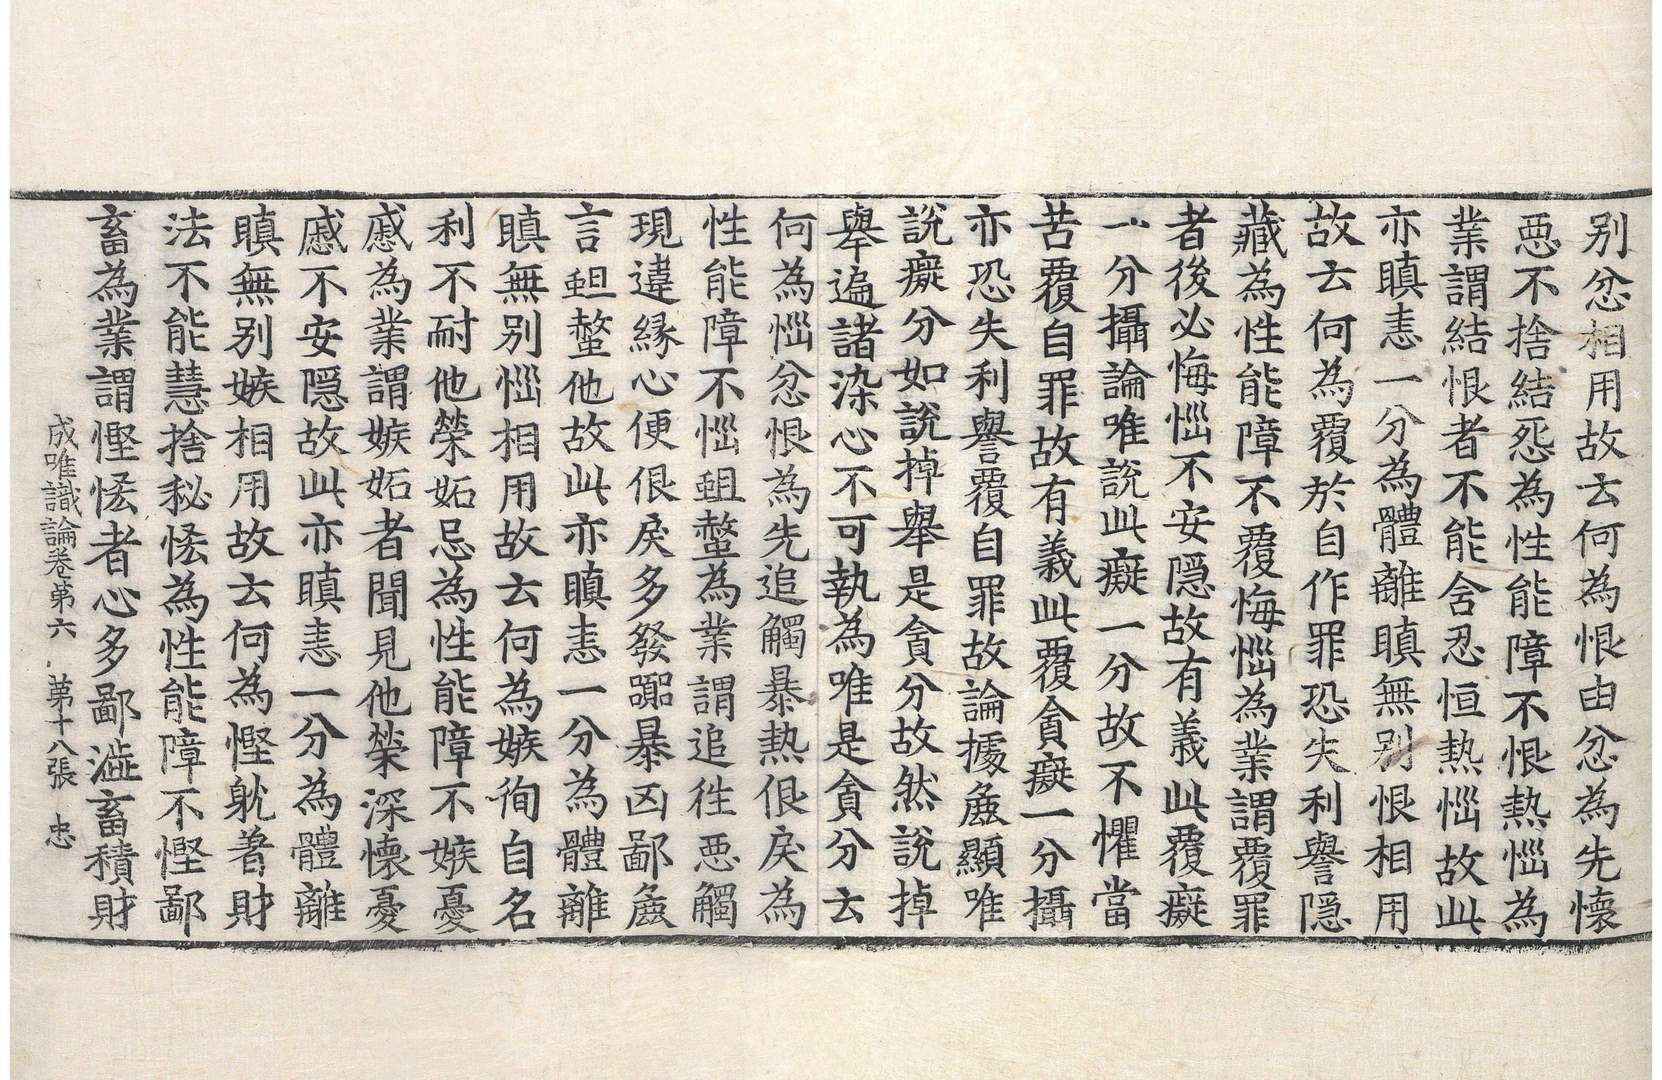 别忿相用故云何為恨由忿為先懷
惡不捨結怨為性能障不恨熱惱為
業謂結恨者不能含忍恒熱惱故此
亦瞋恚一分為體離瞋無别恨相用
故云何為覆於自作罪恐失利譽隱
藏為性能障不覆悔惱為業謂覆罪
者後必悔惱不安隱故有義此覆癡
一分攝論唯說此癡一分故不懼當
苦覆自罪故有義此覆貪癡一分攝
亦恐失利譽覆自罪故論據麁顯唯
說癡分如說掉舉是貪分故然說掉
舉遍諸染心不可執為唯是貪分云
何為惱忿恨為先追觸暴熱佷戾為
性能障不惱蛆螫為業謂追徃惡觸
現違緣心便佷戾多發囂暴凶鄙麁
言蛆螫他故此亦瞋恚一分為體離
瞋無别惱相用故云何為嫉徇自名
利不耐他榮妬忌為性能障不嫉憂
慼為業謂嫉妬者聞見他榮深懷憂
慼不安隱故此亦瞋恚一分為體離
瞋無别嫉相用故云何為慳躭著財
法不能慧捨秘悋為性能障不慳鄙
畜為業謂慳悋者心多鄙澁畜積財
成唯識論卷第六 第十八張 忠